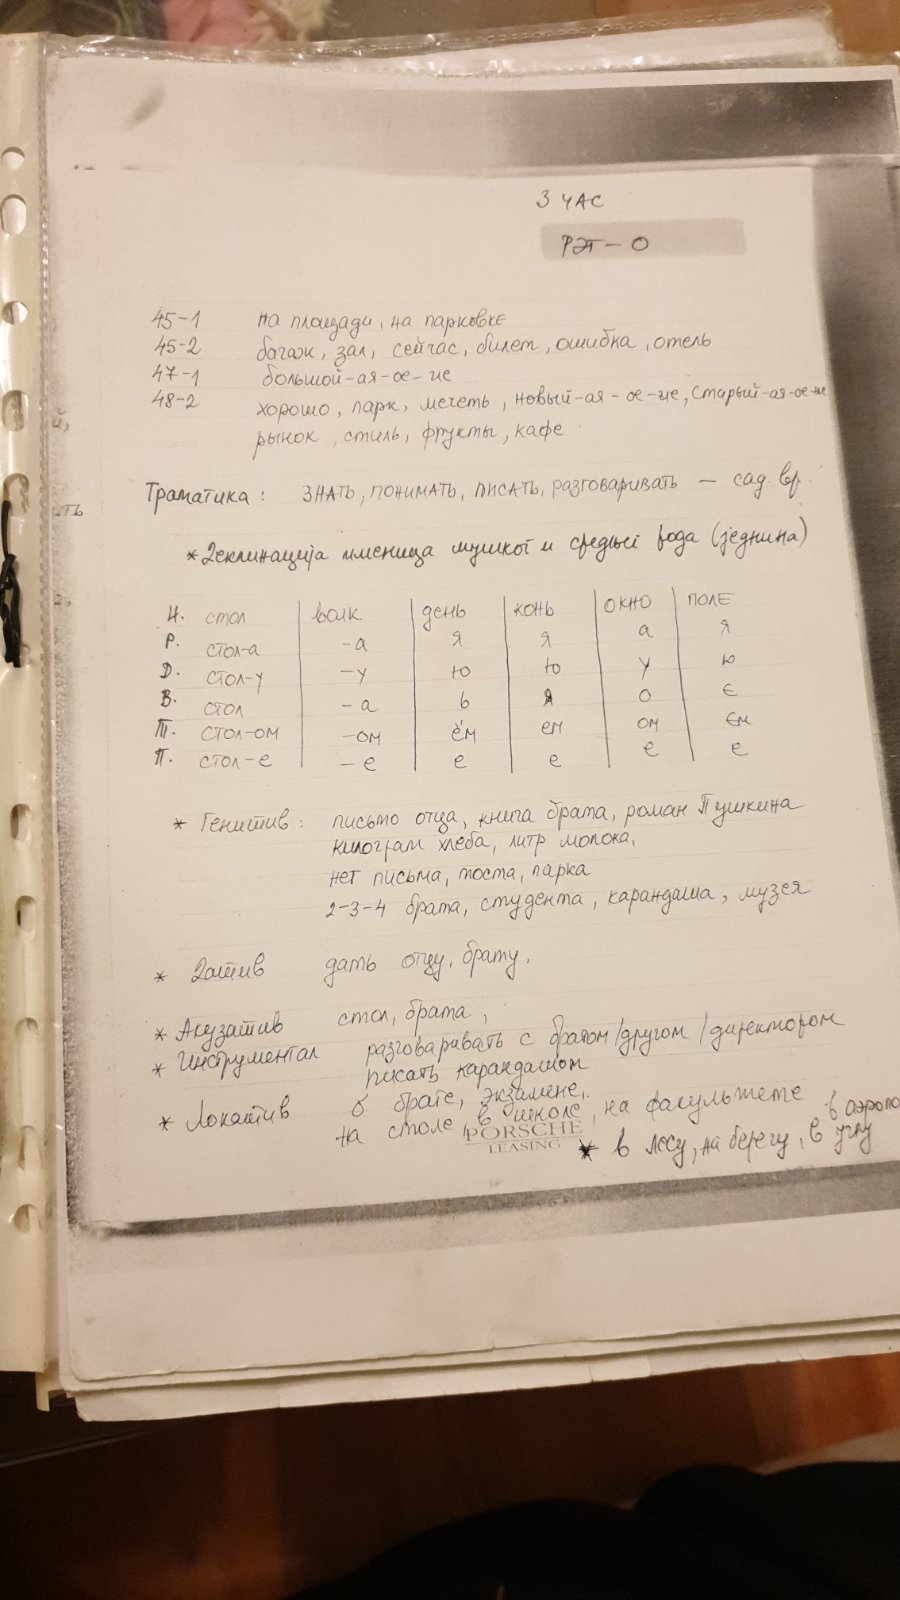 3 ЧАС
РЭТ - О
45-1 на площади, на парковке
45-2 багаж, зал, сейчас, билет, ошибка, отель
47-1 большой-ая-ое-ие
48-2 хорошо, парк, мечеть, новый-ая-ое-ие, старый-ая-ое-ие
рынок, стиль, фрукты, кафе
Граматика: ЗНАТЬ, ПОНИМАТЬ, ПИСАТЬ, РАЗГОВАРИВАТЬ — сад. вр.
* Деклинација именица мушког и средњег рода (једнина)
Н. СТОЛ | ВОЛК | ДЕНЬ | КОНЬ | ОКНО | ПОЛЕ
Р. СТОЛ-а | -а | я | я | а | я
D. СТОЛ-у | -у | ю | ю | у | ю
В. СТОЛ | -а | ь | я | о | е
Т. СТОЛ-ом | -ом | ём | ем | ом | ем
П. СТОЛ-е | -е | е | е | е | е
* Генитив: письмо отца, книга брата, роман Пушкина
килограм хлеба, литр молока,
нет письма, моста, парка
2-3-4 брата, студента, карандаша, музея
* Датив дать отцу, брату,
* Акузатив стол, брата,
* Инструментал разговаривать с братом/другом/директором
писать карандашом
* Локатив о брате, экзамене,
на столе, в школе, на факультете
PORSCHE
LEASING
* в лесу, на берегу, в углу